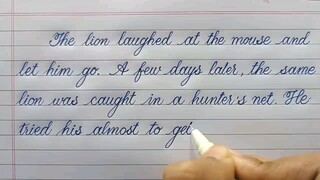 The lion laughed at the mouse and
let him go. A few days later, the same
lion was caught in a hunter's net. He
tried his almost to get